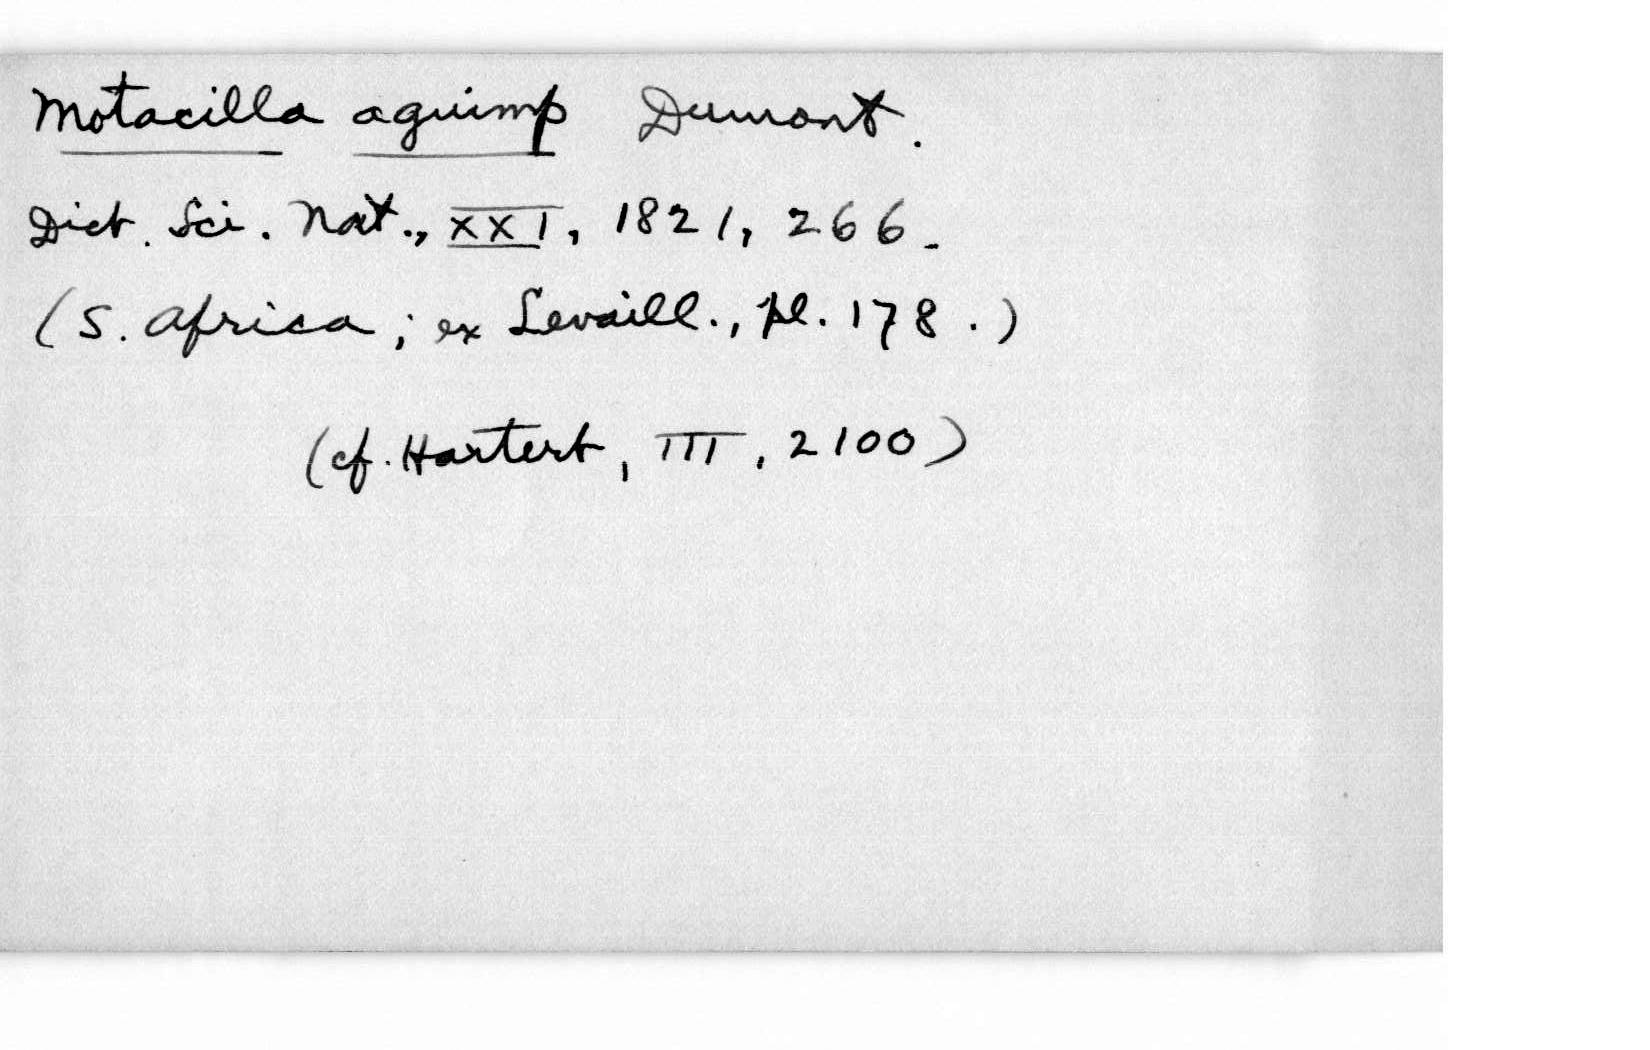 Motacilla aguimp Dumont.
Dict. Sci. Nat., XXI, 1821, 266.
(S. Africa; ex Levaill., pl. 178.)
(cf. Hartert, III, 2100)